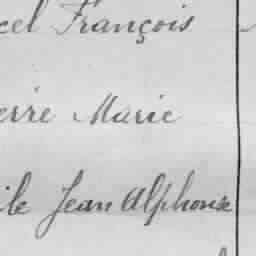 cel François
erre Marie
ile Jean Alphonse